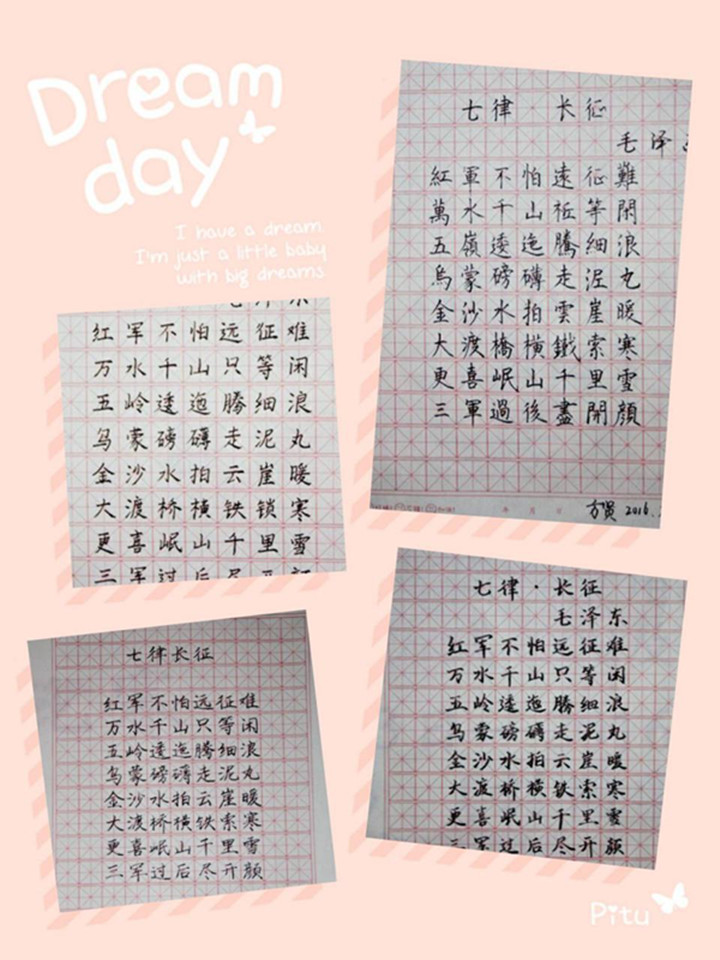 Dream
day
I have a dream.
I'm just a little baby
with big dreams.
七律 长征
毛泽
紅軍不怕遠征難
萬水千山祗等閑
五嶺逶迤騰細浪
烏蒙磅礴走泥丸
金沙水拍雲崖暖
大渡橋橫鐵索寒
更喜岷山千里雪
三軍過後盡開顔
2016.
红军不怕远征难
万水千山只等闲
五岭逶迤腾细浪
乌蒙磅礴走泥丸
金沙水拍云崖暖
大渡桥横铁锁寒
更喜岷山千里雪
三军过后尽开颜
七律长征
红军不怕远征难
万水千山只等闲
五岭逶迤腾细浪
乌蒙磅礴走泥丸
金沙水拍云崖暖
大渡桥横铁索寒
更喜岷山千里雪
三军过后尽开颜
七律·长征
毛泽东
红军不怕远征难
万水千山只等闲
五岭逶迤腾细浪
乌蒙磅礴走泥丸
金沙水拍云崖暖
大渡桥横铁索寒
更喜岷山千里雪
三军过后尽开颜
Pitu